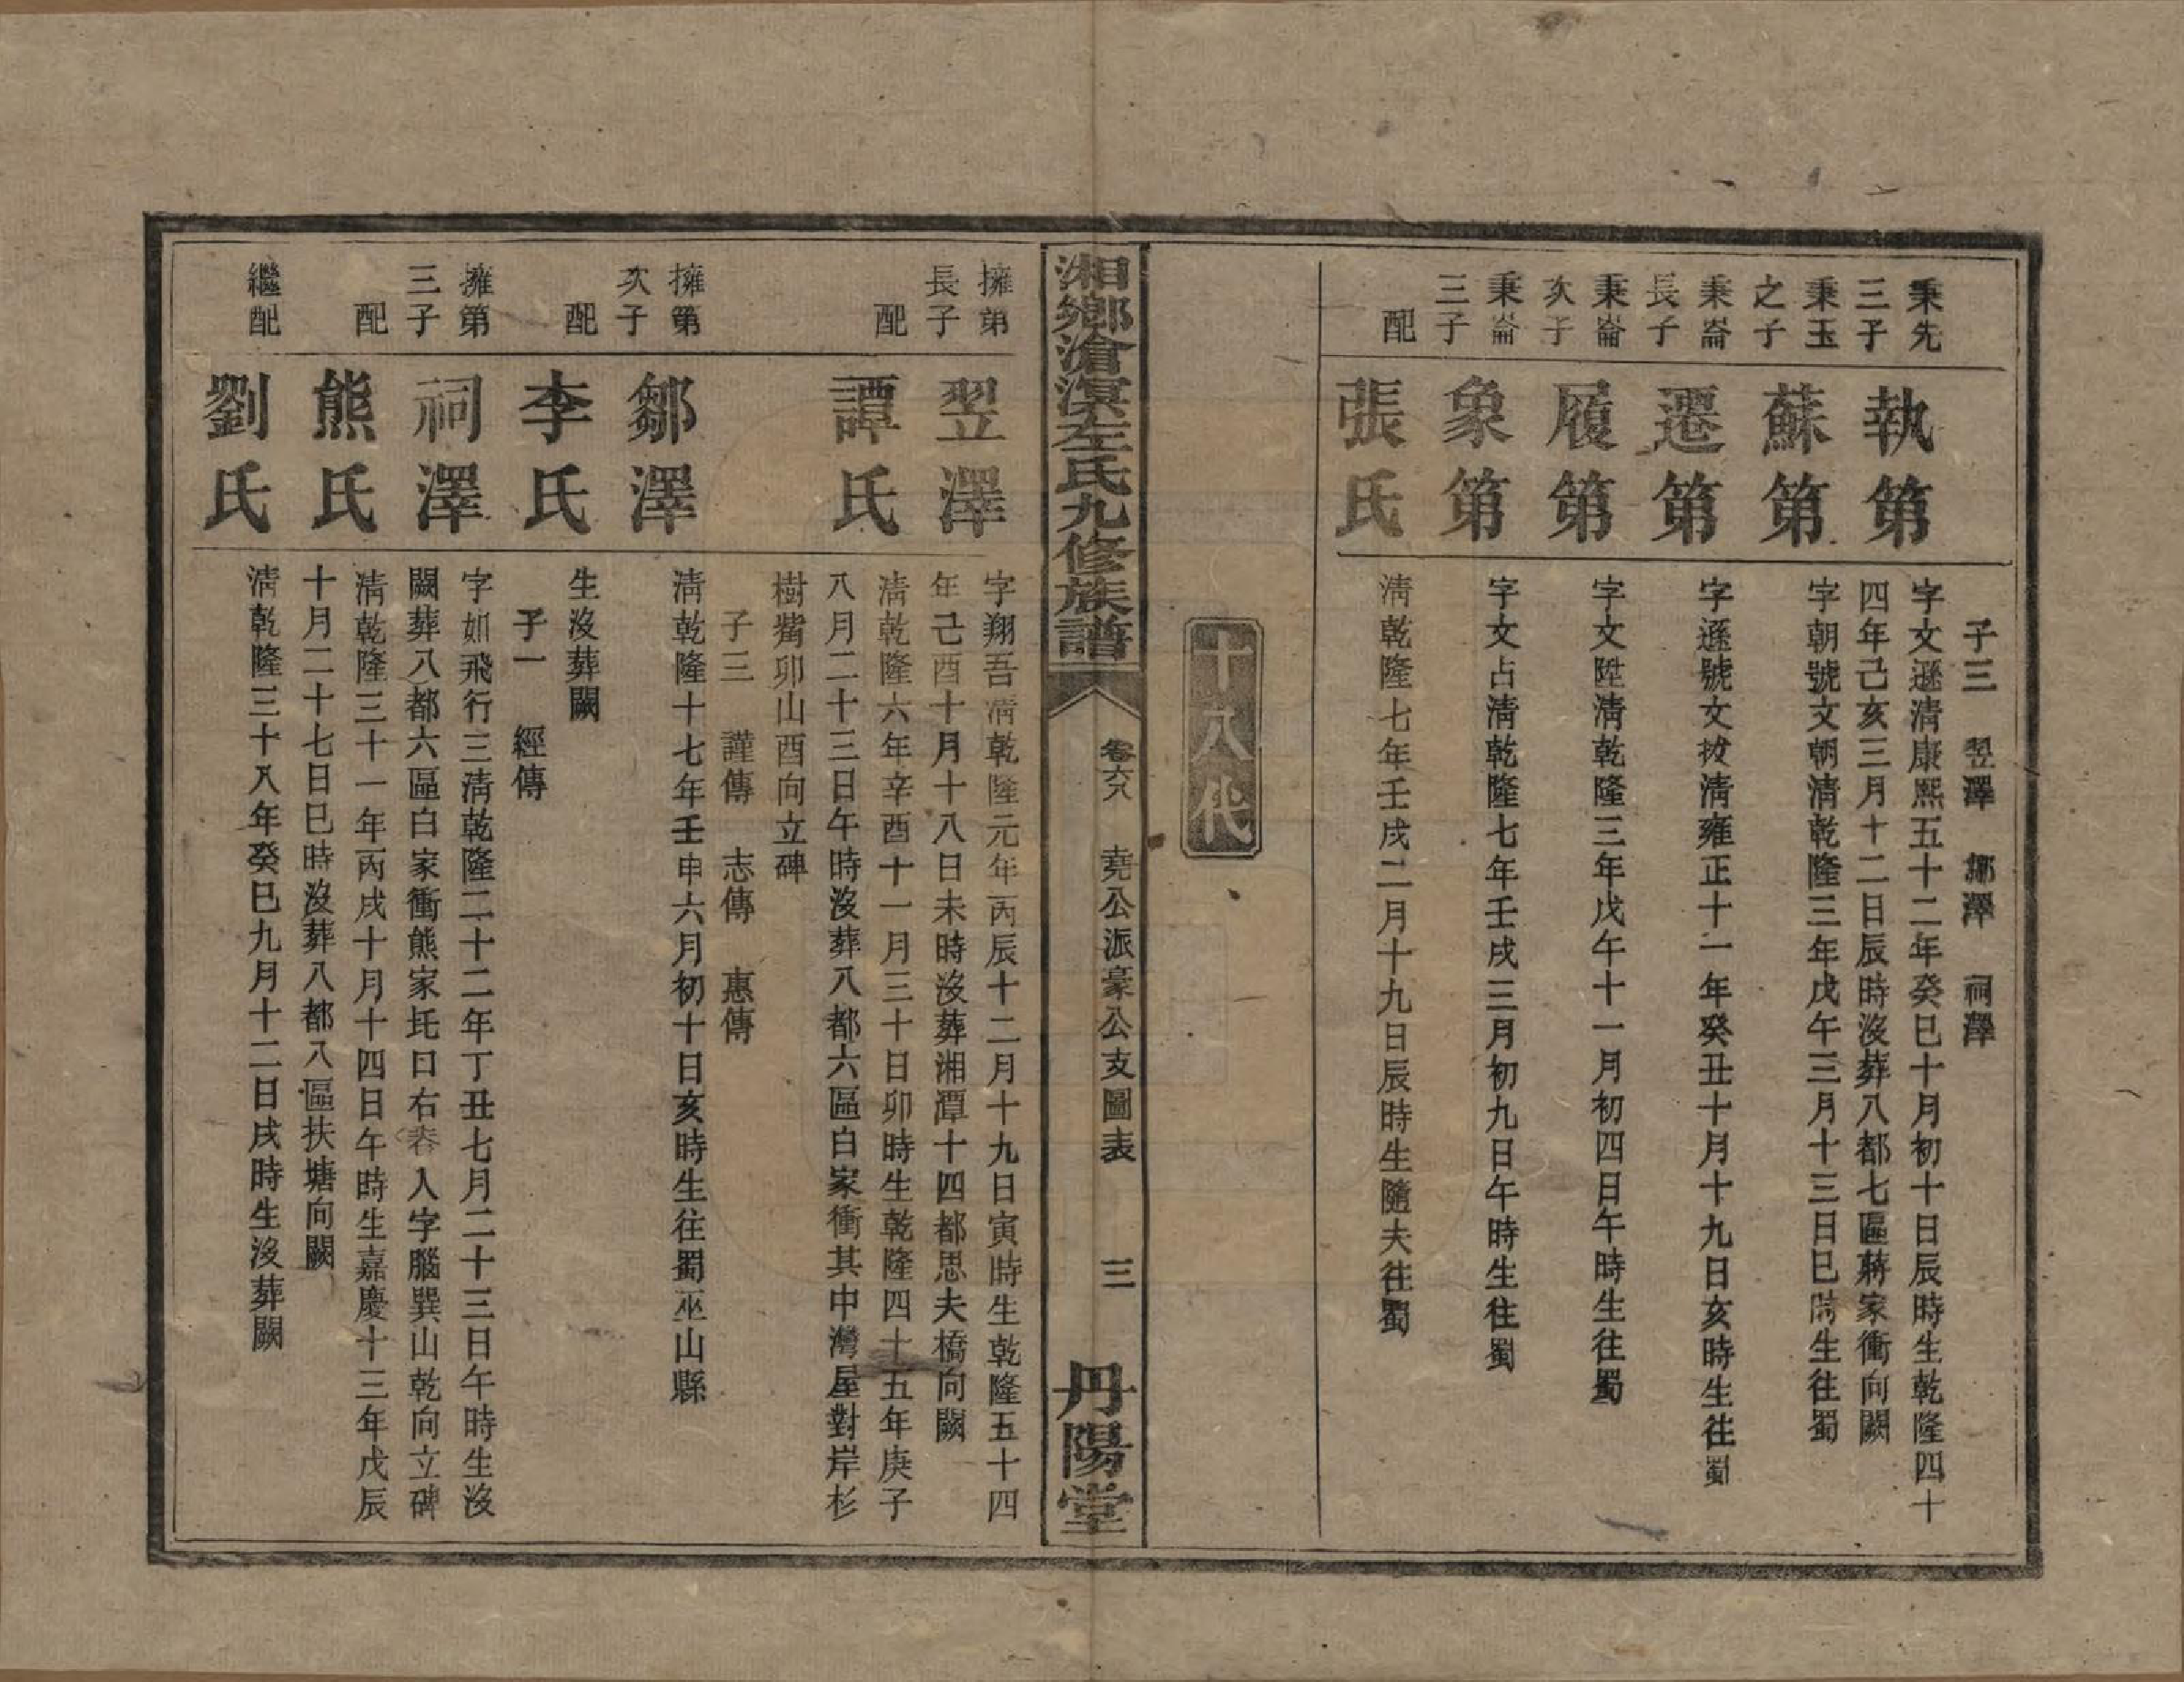 子三　翌澤　鄒澤　祠澤
秉先三子
執第
字文遜清康熙五十二年癸巳十月初十日辰時生乾隆四十
四年己亥三月十二日辰時沒葬八都七區蔣家衝向闕
秉玉之子
蘇第
字朝號文朝清乾隆三年戊午三月十三日巳時生往蜀
秉崙長子
遷第
字遜號文拔清雍正十一年癸丑十月十九日亥時生往蜀
秉崙次子
履第
字文陞清乾隆三年戊午十一月初四日午時生往蜀
秉崙三子
象第
字文占清乾隆七年壬戌三月初九日午時生往蜀
配
張氏
清乾隆七年壬戌二月十九日辰時生隨夫往蜀
十八代
湘鄉滄溟左氏九修族譜
卷六八　堯公派豪公支圖表　三
丹陽堂
擁第長子
翌澤
字翔吾清乾隆元年丙辰十二月十九日寅時生乾隆五十四
年己酉十月十八日未時沒葬湘潭十四都思夫橋向闕
配
譚氏
清乾隆六年辛酉十一月三十日卯時生乾隆四十五年庚子
八月二十三日午時沒葬八都六區白家衝其中灣屋對岸杉
樹嘴卯山酉向立碑
子三　謹傳　志傳　惠傳
擁第次子
鄒澤
清乾隆十七年壬申六月初十日亥時生往蜀巫山縣
配
李氏
生沒葬闕
子一　經傳
擁第三子
祠澤
字如飛行三清乾隆二十二年丁丑七月二十三日午時生沒
闕葬八都六區白家衝熊家坵口右人字腦巽山乾向立碑
配
熊氏
清乾隆三十一年丙戌十月十四日午時生嘉慶十三年戊辰
十月二十七日巳時沒葬八都八區扶塘向闕
繼配
劉氏
清乾隆三十八年癸巳九月十二日戌時生沒葬闕